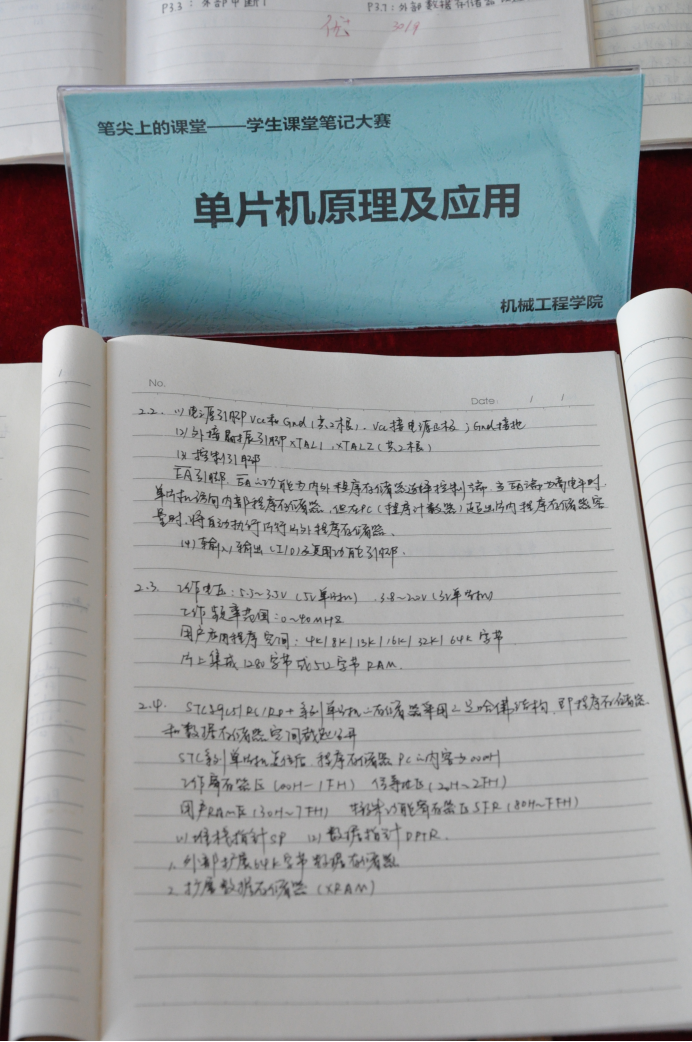 P3.3：外部中断1
P3.7：外部数据存储器
优+
30/9
笔尖上的课堂——学生课堂笔记大赛
单片机原理及应用
机械工程学院
No.
Date / /
2.2. (1) 电源引脚 Vcc和Gnd (共2根)、Vcc接电源正极；Gnd接地
(2) 外接晶振引脚 XTAL1、XTAL2 (共2根)
(3) 控制引脚
EA引脚 EA之功能为内外程序存储器选择控制端. 当EA端为高电平时,
单片机访问内部程序存储器, 但在PC (程序计数器) 超出片内程序存储器容
量时, 将自动执行片外程序存储器.
(4) 输入/输出 (I/O) 及复用功能引脚.
2.3. 工作电压：5.5~3.5V (5V单片机) 3.8~2.0V (3V单片机)
工作频率范围：0~40MHz
用户应用程序空间：4K/8K/13K/16K/32K/64K字节
片上集成1280字节或512字节RAM.
2.4. STC89C51RC/RD+系列单片机之存储器采用之是哈佛结构, 即程序存储器
和数据存储器空间截然分开
STC系列单片机复位后, 程序存储器PC之内容为000H
工作寄存器区 (00H-1FH) 位寻址区 (20H~2FH)
用户RAM区 (30H~7FH) 特殊功能寄存器区SFR (80H~FFH)
(1) 堆栈指针SP (2) 数据指针DPTR.
1. 外部扩展64K字节数据存储器
2. 扩展数据存储器 (XRAM)